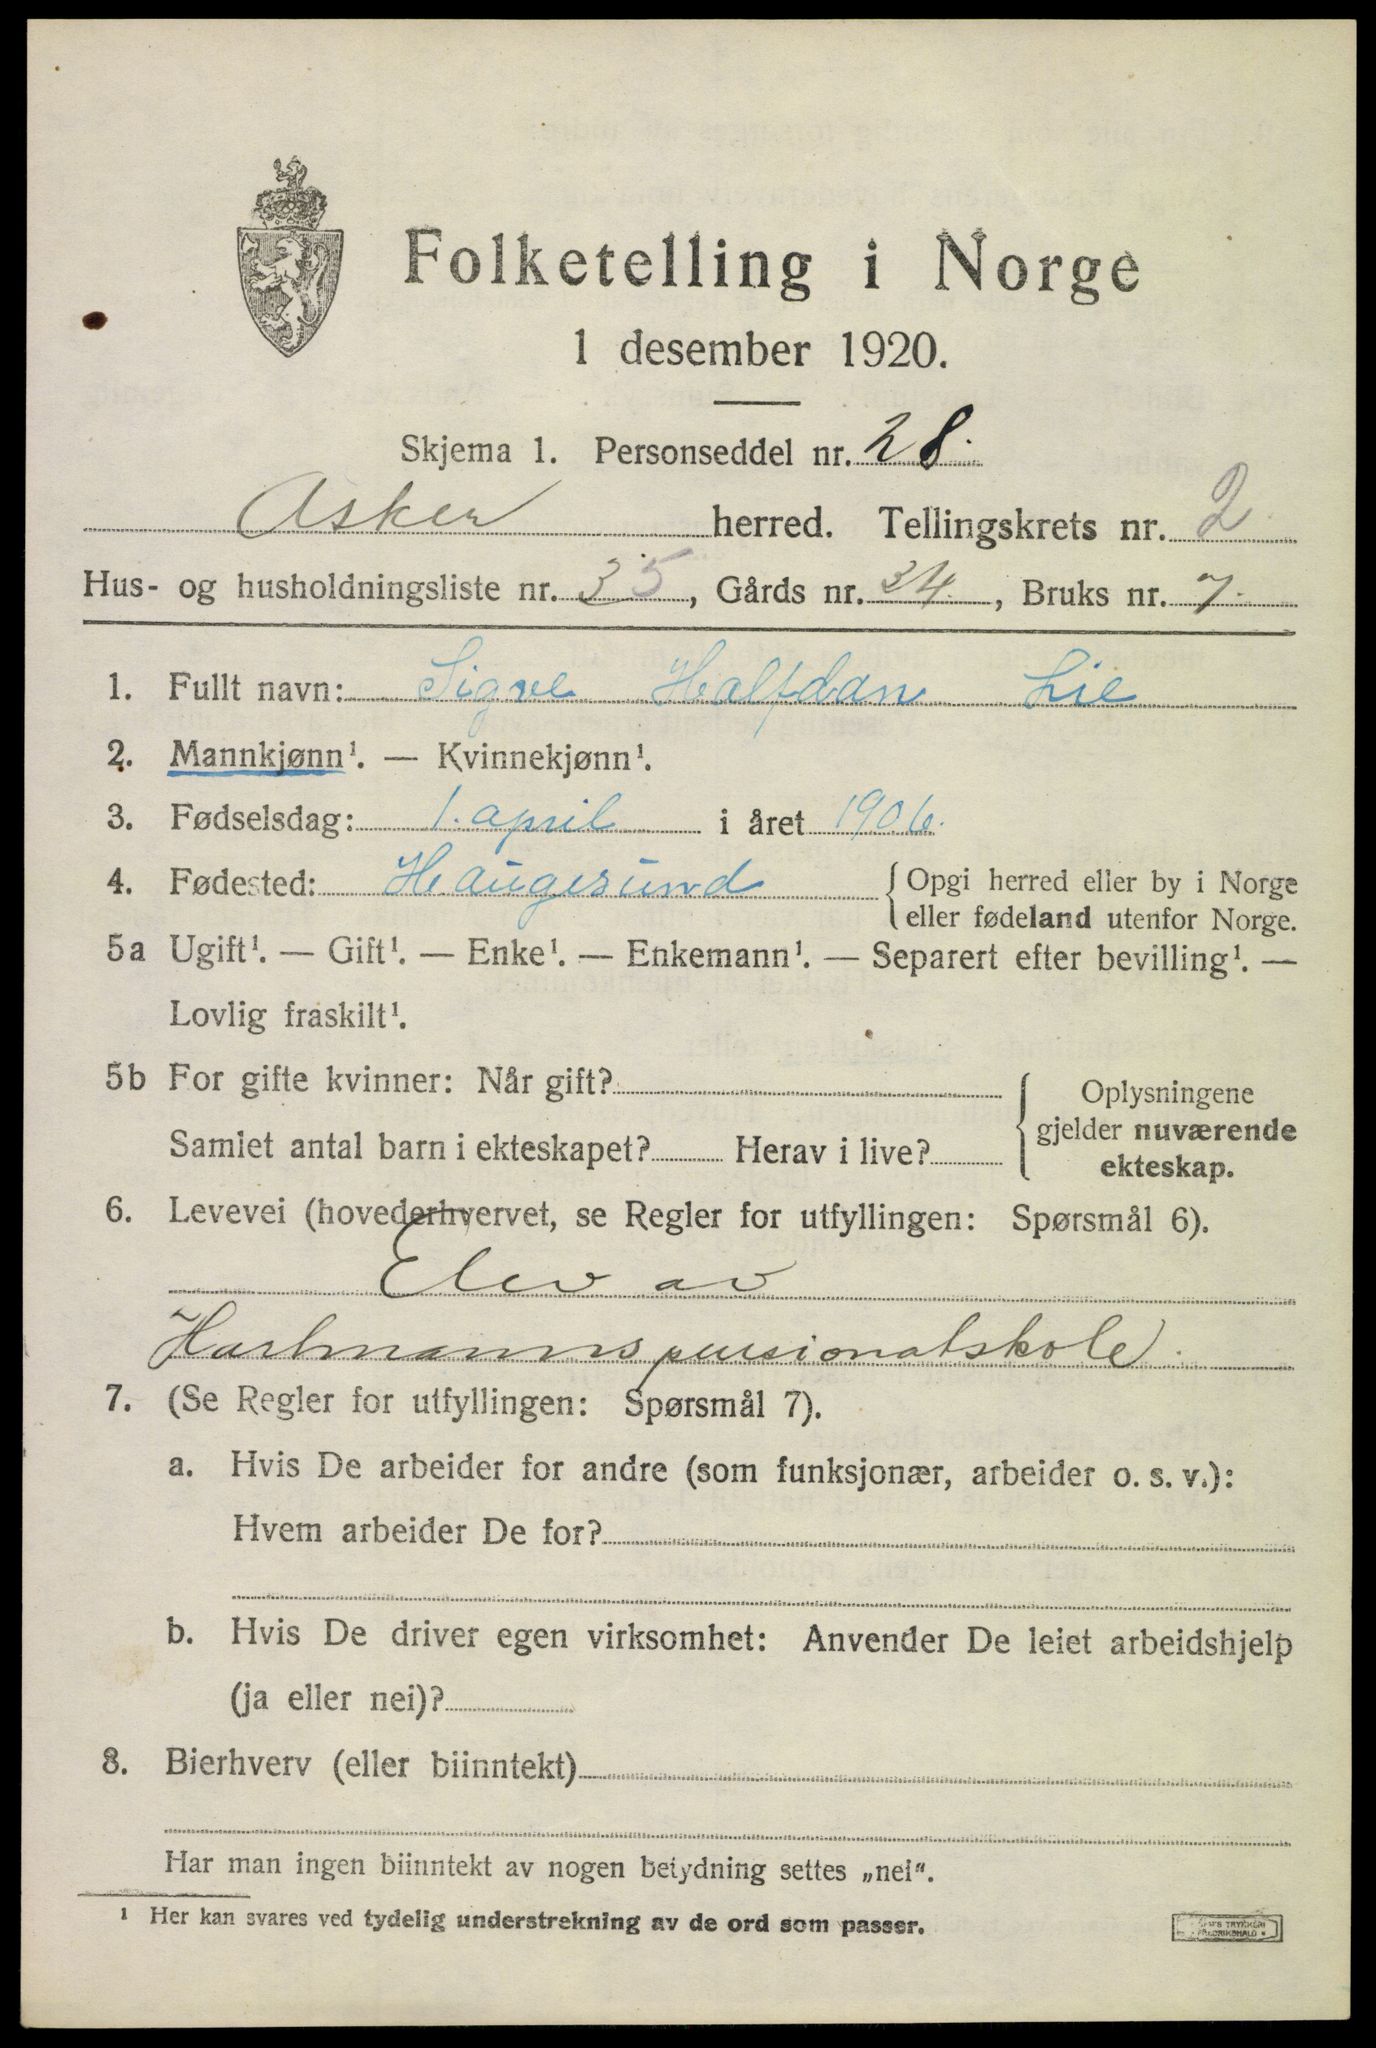 Folketelling i Norge
1 desember 1920.
Skjema 1. Personseddel nr. 28.
Asker herred. Tellingskrets nr. 2
Hus- og husholdningsliste nr. 35, Gårds nr. 24, Bruks nr. 7.
1. Fullt navn: Sigve Halfdan Lie
2. Mannkjønn¹. — Kvinnekjønn¹.
3. Fødselsdag: 1. april i året 1906.
4. Fødested: Haugesund { Opgi herred eller by i Norge
eller fødeland utenfor Norge.
5a Ugift¹. — Gift¹. — Enke¹. — Enkemann¹. — Separert efter bevilling¹. —
Lovlig fraskilt¹.
5b For gifte kvinner: Når gift? { Oplysningene
gjelder nuværende
Samlet antal barn i ekteskapet? Herav i live?
ekteskap.
6. Levevei (hovederhvervet, se Regler for utfyllingen: Spørsmål 6).
Elev av
Hartmanns pensionatskole.
7. (Se Regler for utfyllingen: Spørsmål 7).
a. Hvis De arbeider for andre (som funksjonær, arbeider o. s. v.):
Hvem arbeider De for?
b. Hvis De driver egen virksomhet: Anvender De leiet arbeidshjelp
(ja eller nei)?
8. Bierhverv (eller biinntekt)
Har man ingen biinntekt av nogen betydning settes „nei“.
¹ Her kan svares ved tydelig understrekning av de ord som passer.
TRYKKERI
FREDRIKSHALD